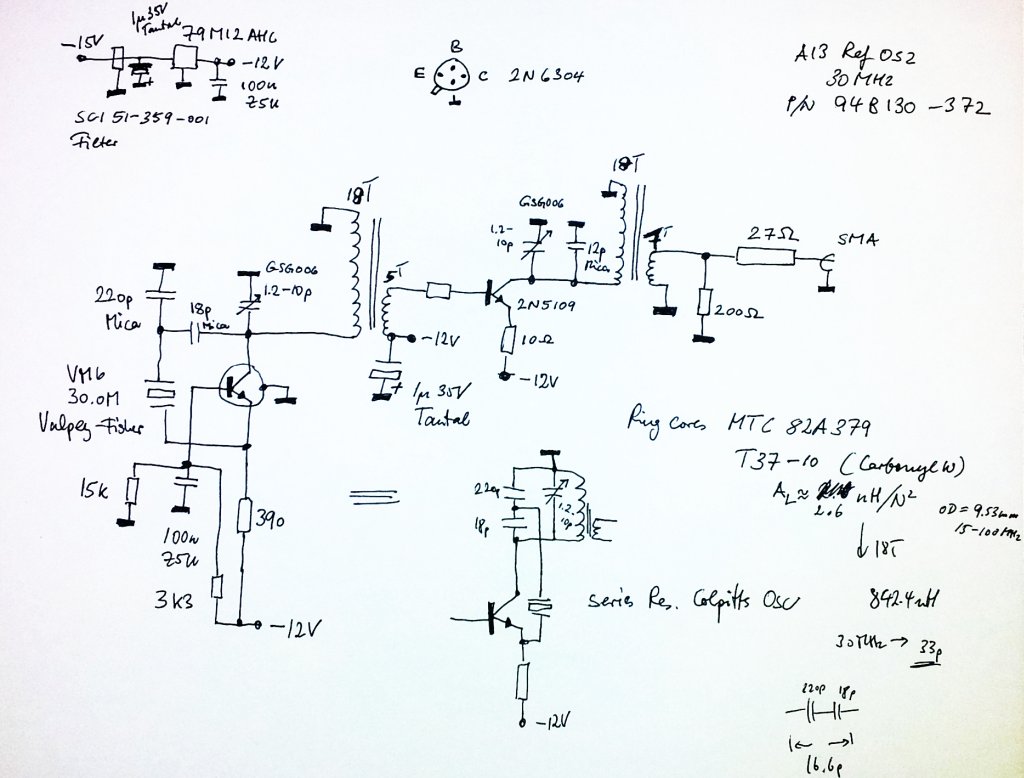 1µ 35V
Tantal
79M12 AHC
-15V
-12V
100n
Z5U
SCI 51-359-001
Filter
B
E
C
2N6304
A13 Ref Osz
30 MHz
P/N 94B130-372
18T
18T
GSG006
1.2-10p
12p
Mica
7T
27Ω
SMA
200Ω
220p
Mica
18p
Mica
GSG006
1.2-10p
5T
2N5109
10Ω
-12V
-12V
1µ 35V
Tantal
VM6
30.0M
Valpey-Fisher
15k
100n
Z5U
390
3k3
-12V
Ring cores MTC 82A379
T37-10 (Carbonyl W)
AL≈ 2.6 nH/N²
OD = 9.53mm
15-100MHz
↓ 18T
842.4nH
30MHz → 33p
220p
18p
1.2-
10p
Series Res. Colpitts Osc
-12V
220p 18p
16.6p